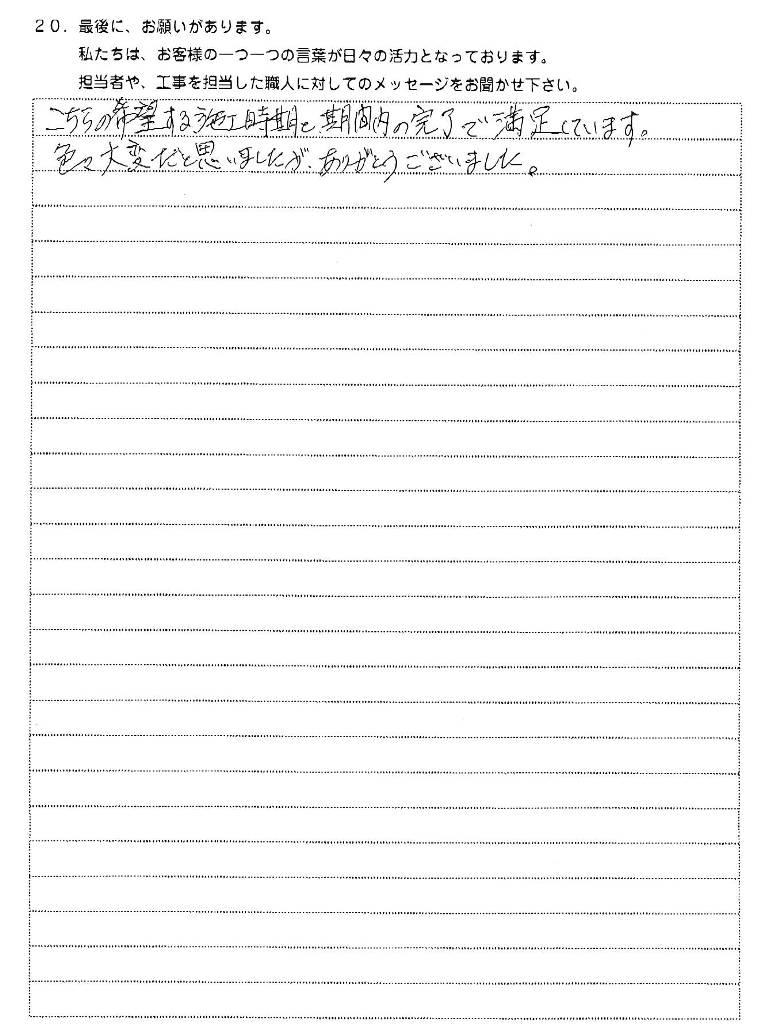 20. 最後に、お願いがあります。
私たちは、お客様の一つ一つの言葉が日々の活力となっております。
担当者や、工事を担当した職人に対してのメッセージをお聞かせ下さい。
こちらの希望する施工時期と期間内の完了で満足しています。
色々大変だと思いましたが、ありがとうございました。